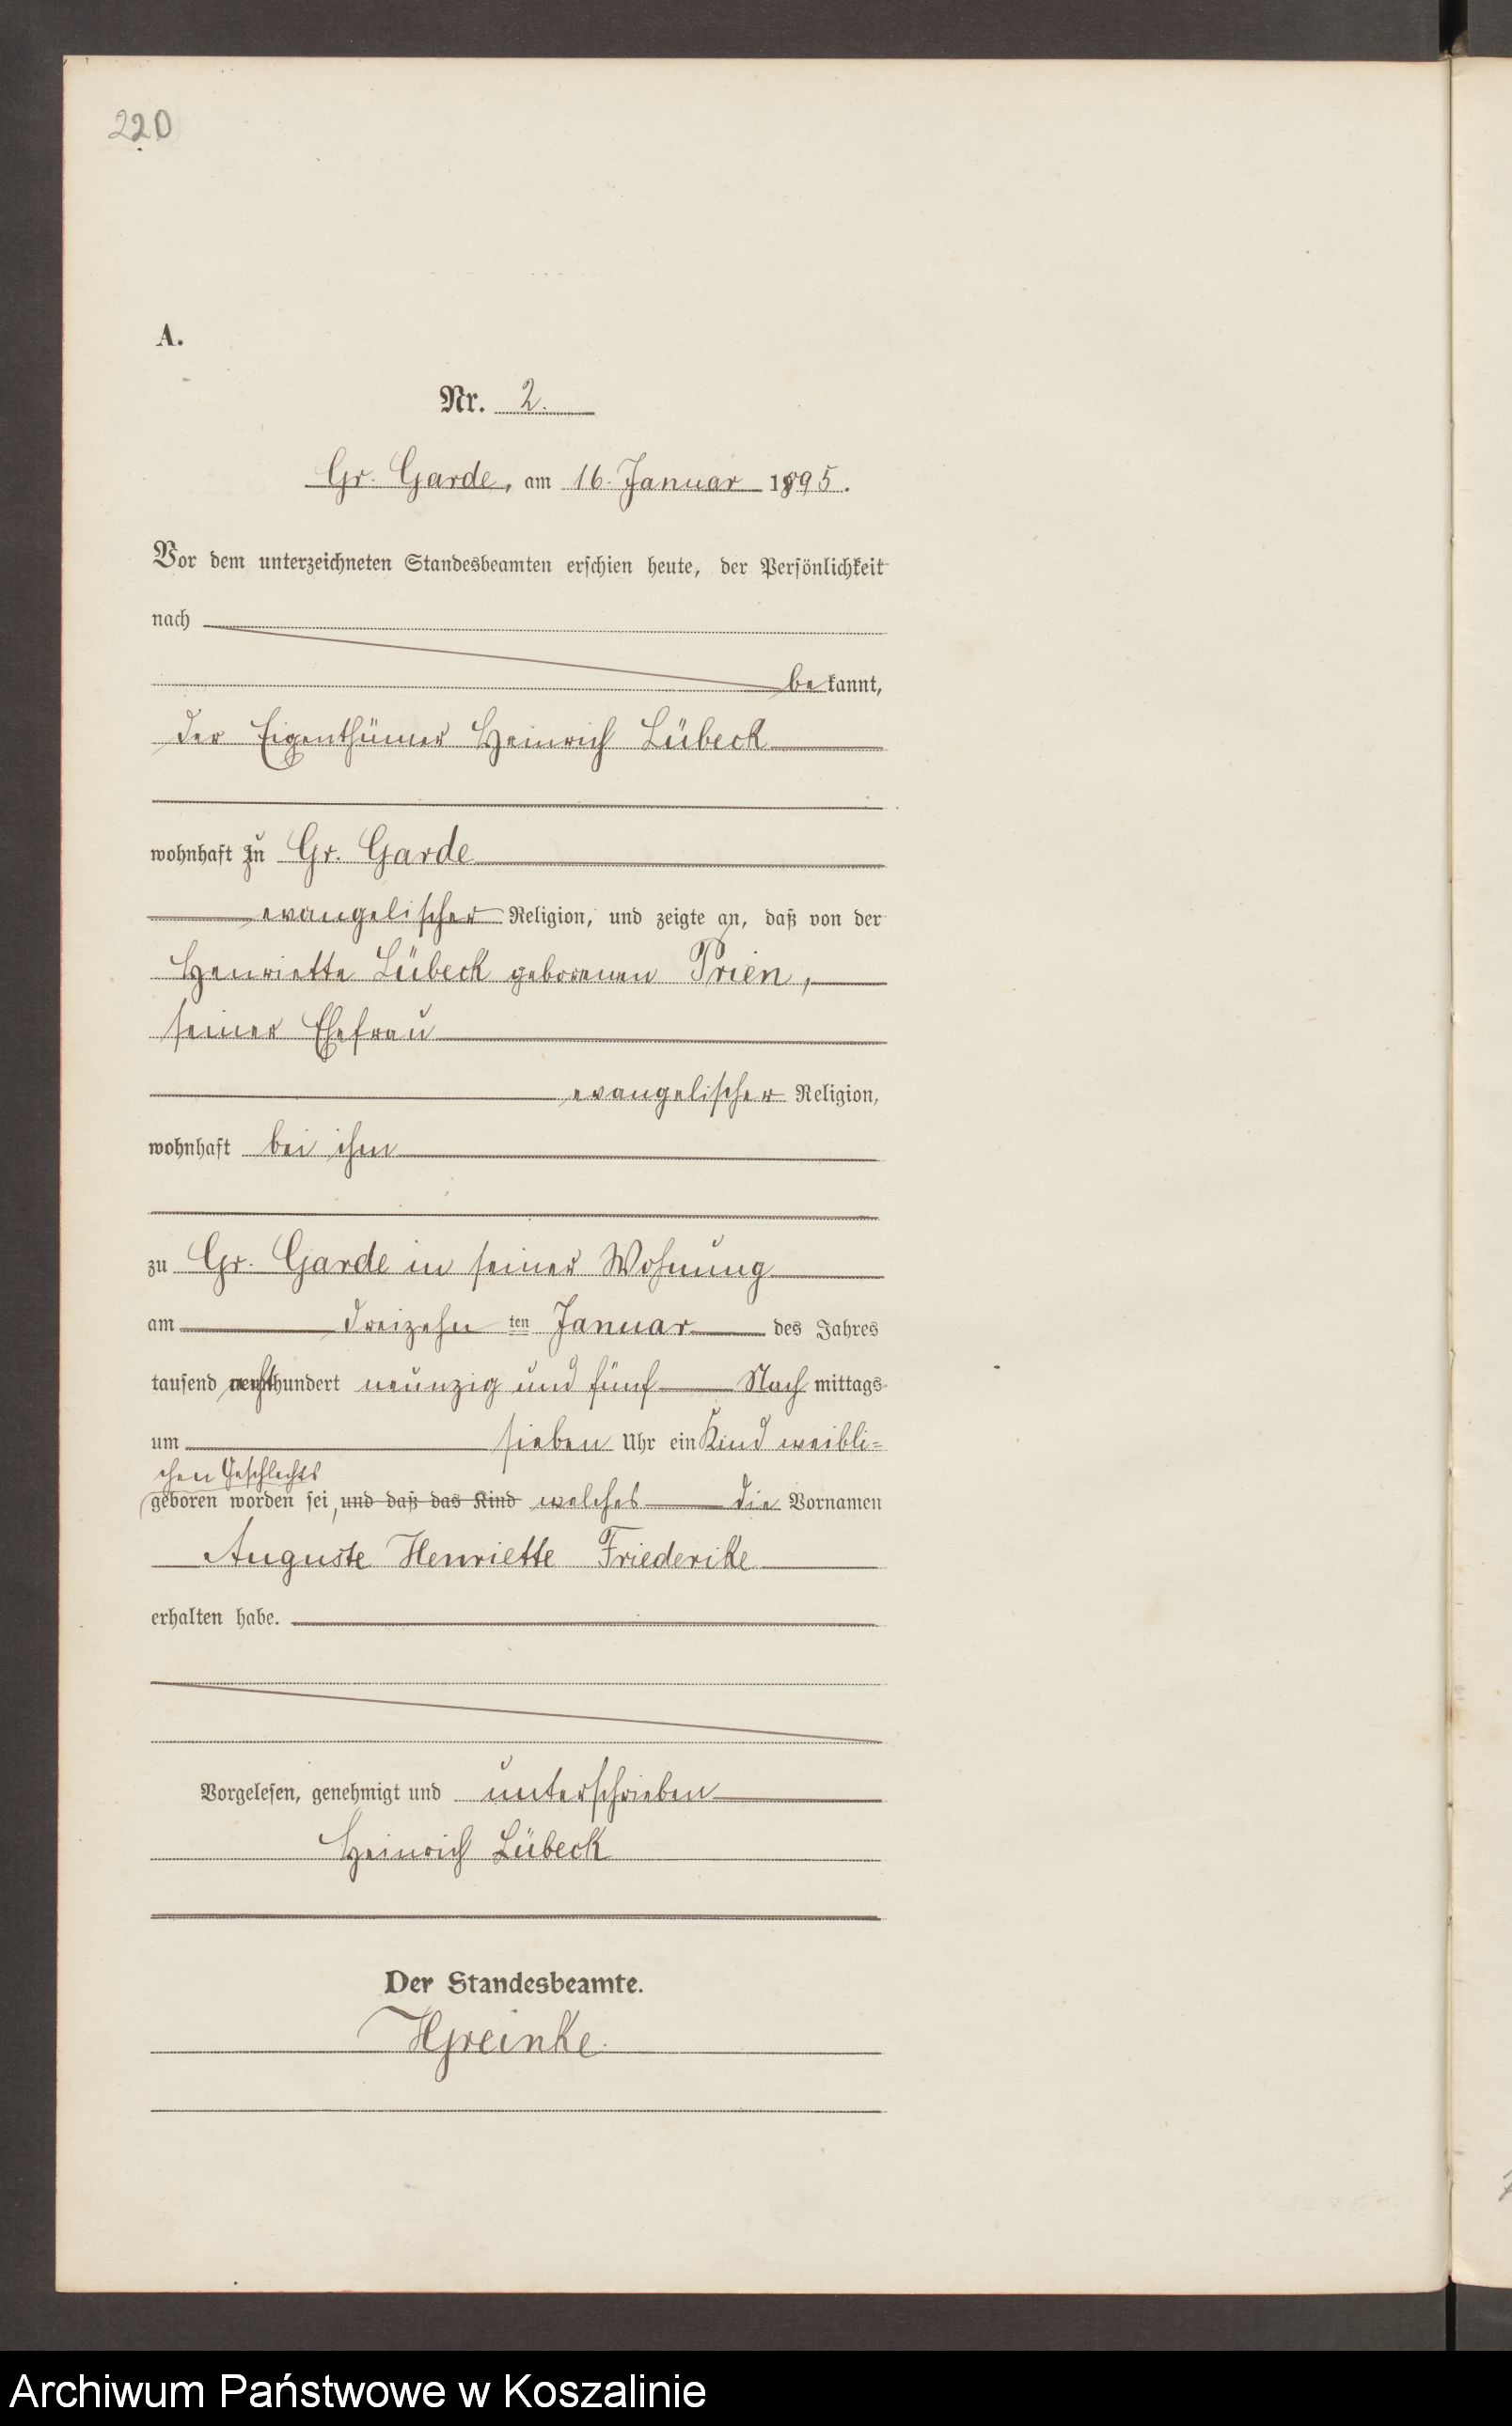 220
A.
Nr. 2.
Gr. Garde, am 16. Januar 1895.
Vor dem unterzeichneten Standesbeamten erschien heute, der Persönlichkeit
nach
bekannt,
der Eigenthümer Heinrich Lübeck
wohnhaft zu Gr. Garde
evangelischer Religion, und zeigte an, daß von der
Henriette Lübeck geborenen Prien,
seiner Ehefrau
evangelischer Religion,
wohnhaft bei ihm
zu Gr. Garde in seiner Wohnung
am dreizehn ten Januar des Jahres
tausend achthundert neunzig und fünf Nachmittags
um sieben Uhr ein Kind weibli=
chen Geschlechts
geboren worden sei, und daß das Kind welches die Vornamen
Auguste Henriette Friederike
erhalten habe.
Vorgelesen, genehmigt und unterschrieben
Heinrich Lübeck
Der Standesbeamte.
HGreinke.
Archiwum Państwowe w Koszalinie